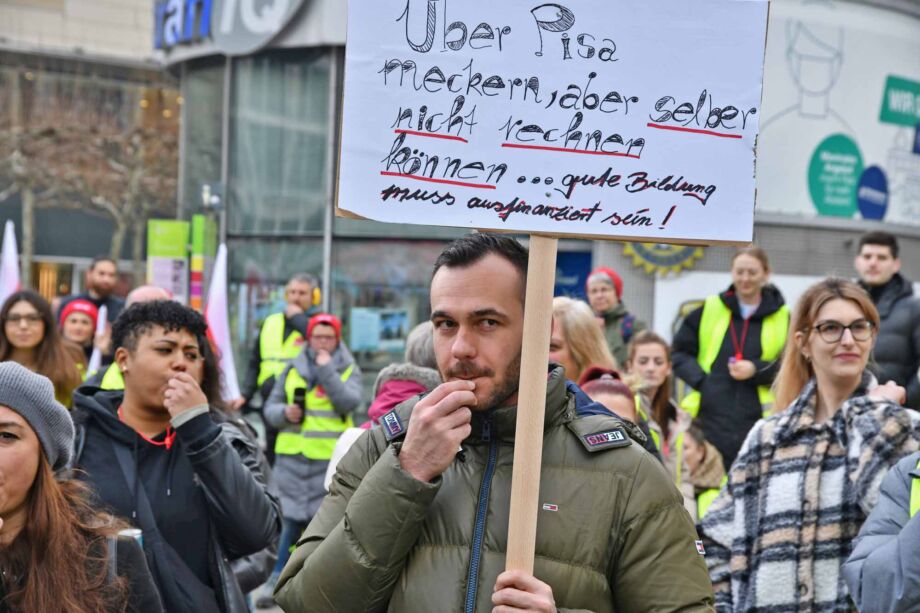 iQ
Über Pisa
meckern, aber selber
nicht rechnen
können ... gute Bildung
muss ausfinanziert sein!
WIR
JEANS
JEANS